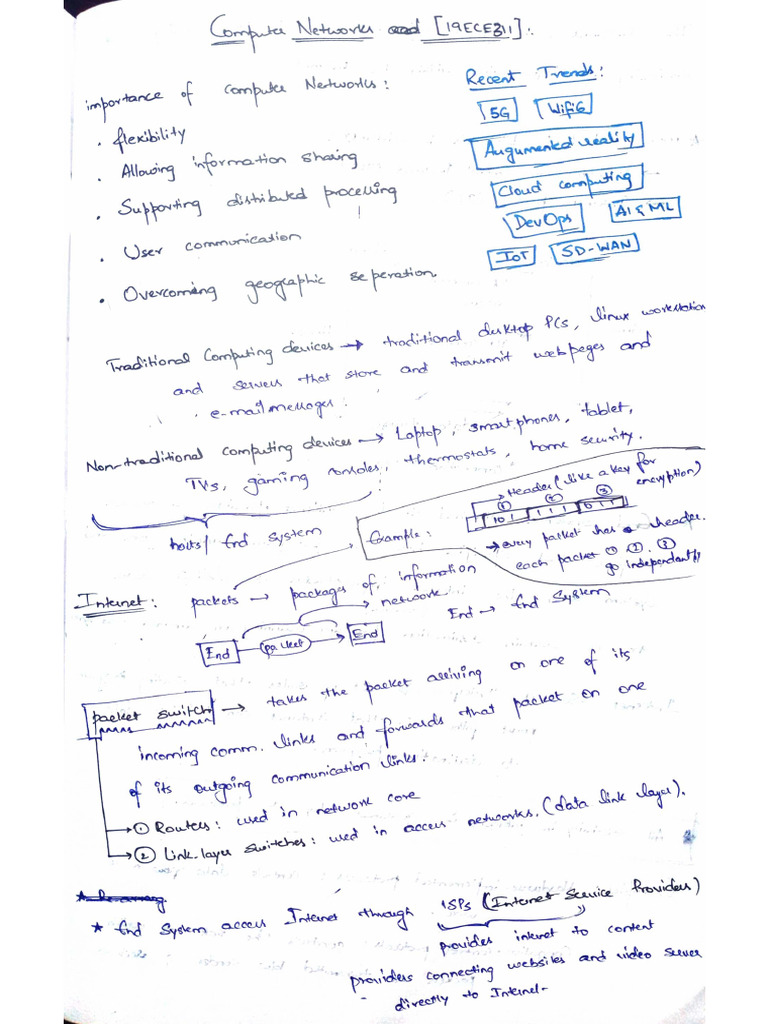 Computer Networks and [19ECE311]:
importance of computer Networks:
• flexibility
• Allowing information sharing
• Supporting distributed processing
• User communication
• Overcoming geographic seperation.
Recent Trends:
5G WiFi6
Augumented reality
Cloud computing
DevOps AI & ML
IoT SD-WAN
Traditional Computing devices → traditional desktop PCs, linux workstation
and servers that store and transmit webpages and
e-mail messages.
Non-traditional computing devices → Laptop, smartphones, tablet,
TVs, gaming consoles, thermostats, home security.
hosts/ End system
Example:
→ Header (like a key for
encryption)
① ② ③
101 111 011
→ every packet has header.
each packet ① ②. ③
go independently
Internet: packets → packages of information
→ network
End packet End
End → End System
packet switch → takes the packet arriving on one of its
incoming comm. links and forwards that packet on one
of its outgoing communication links.
→ ① Routers: used in network core
→ ② Link-layer switches: used in access networks. (data link layer).
★ End System access Internet through ISPs (Internet Service Providers)
provides internet to content
providers connecting websites and video server
directly to Internet-